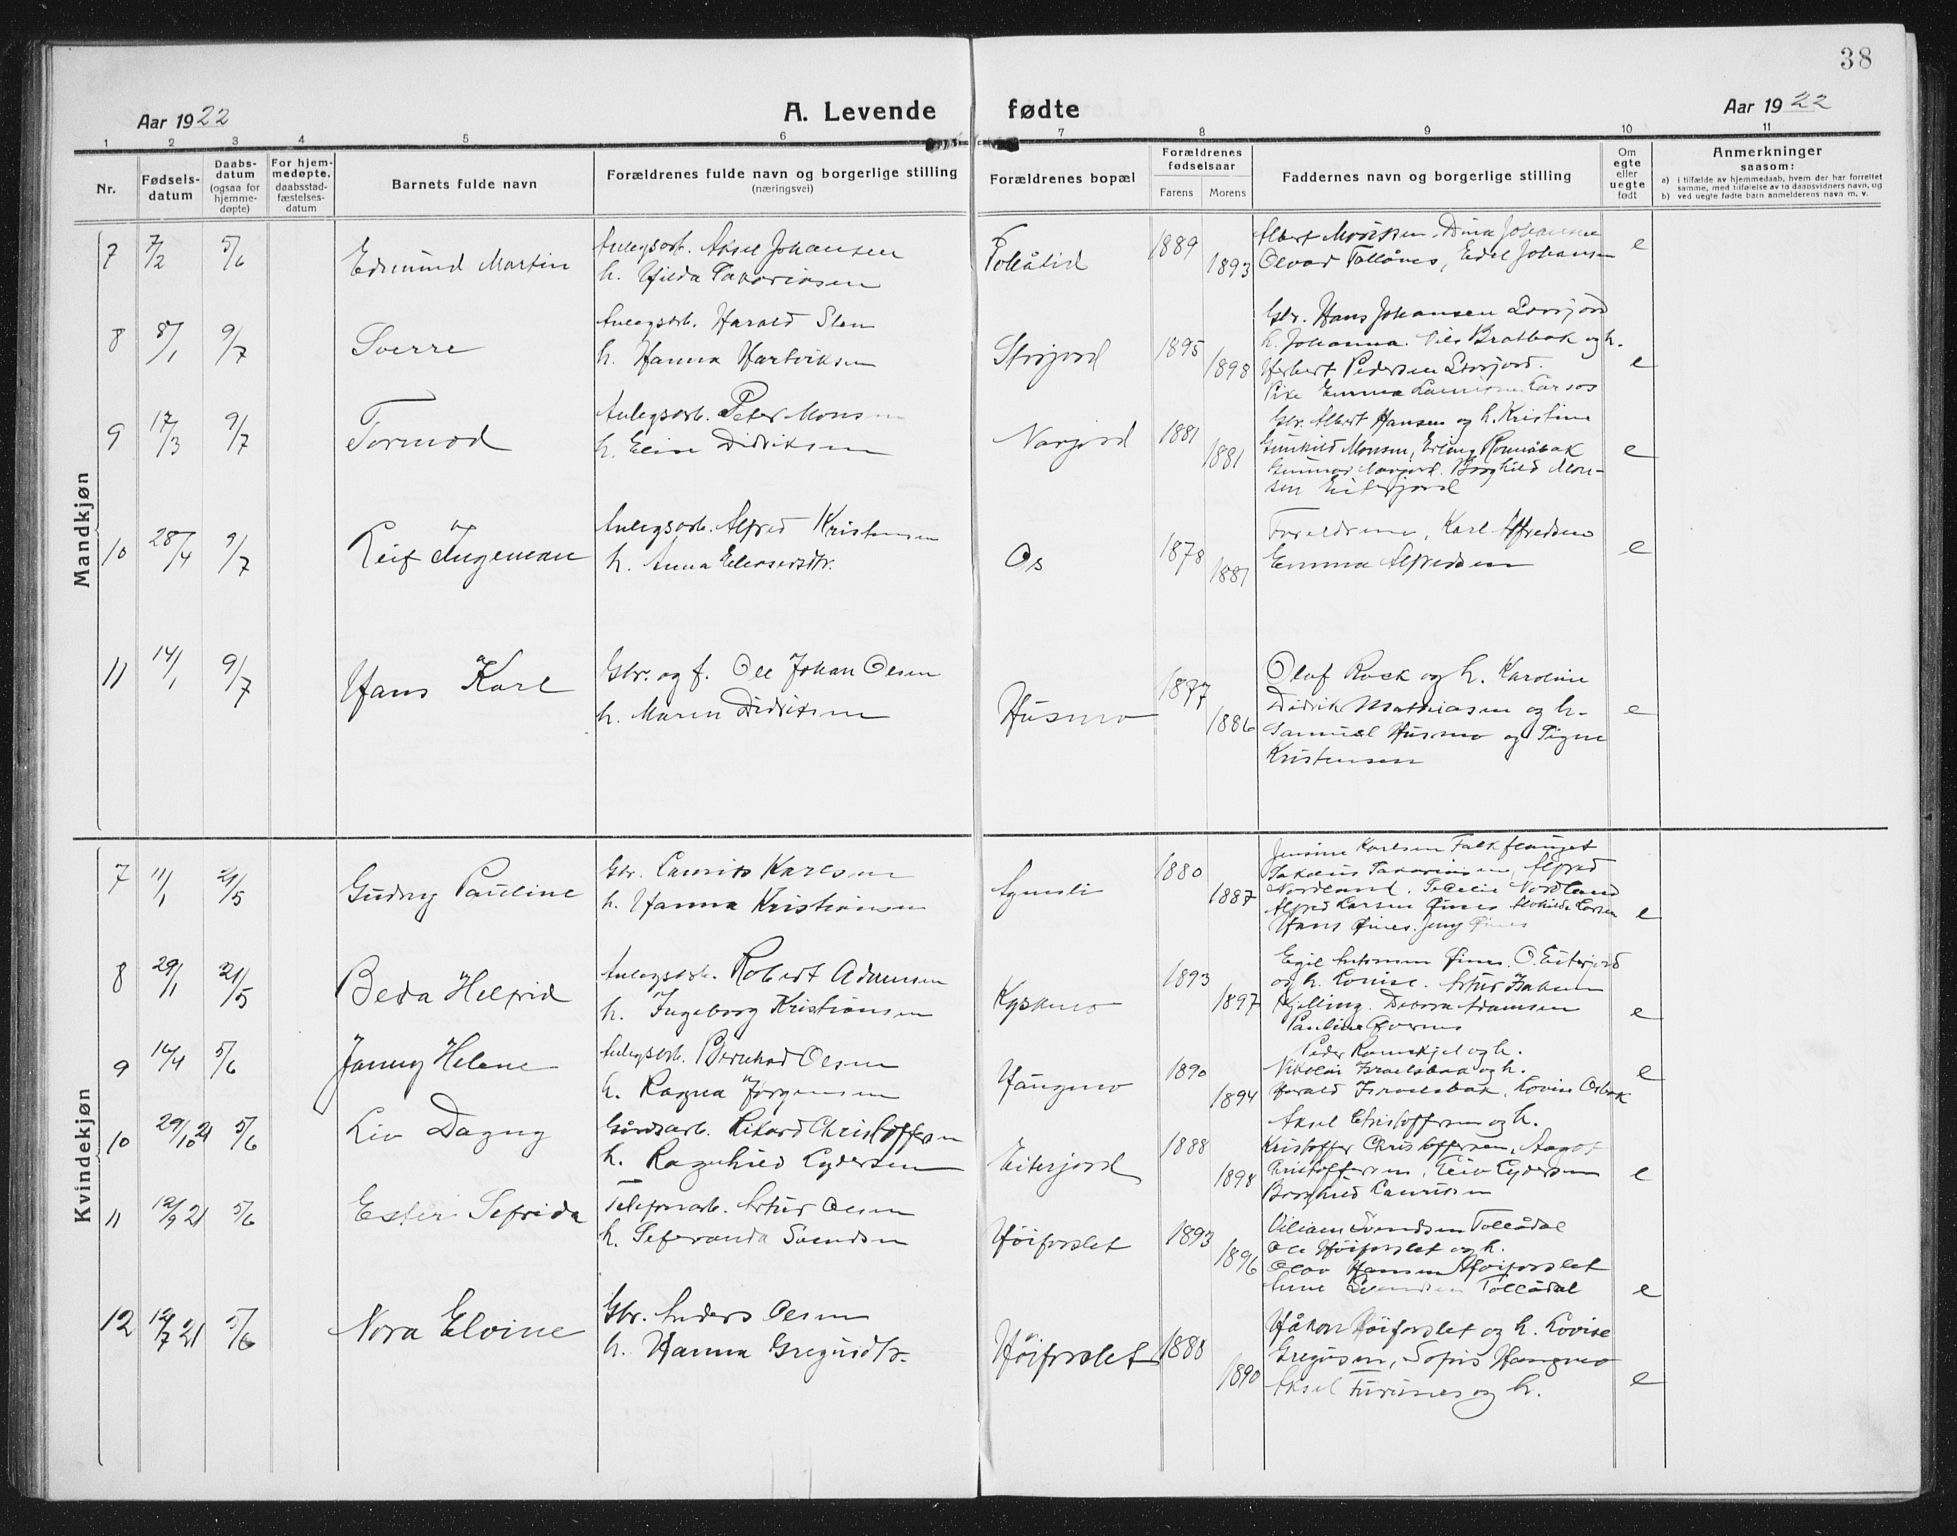 38
Aar 1922
A. Levende fødte
Aar 1922
1 2 3 4 5 6 7 8 9 10 11
Nr.
Fødsels-
datum
Daabs-
datum
(ogsaa for
hjemme-
døpte)
For hjem-
medøpte.
daabsstad-
fæstelses-
datum
Barnets fulde navn
Forældrenes fulde navn og borgerlige stilling
(næringsvei)
Forældrenes bopæl
Forældrenes
fødselsaar
Farens Morens
Faddernes navn og borgerlige stilling
Om
egte
eller
uegte
født
Anmerkninger
saasom:
a) i tilfælde av hjemmedaab, hvem der har forrettet
samme, med tilføielse av to daabsvidners navn, og
b) ved uegte fødte barn anmelderens navn m. v.
Mandkjøn
7 7/2 5/6 Edmund Martin
Anlegsarb. Aksel Johansen
h. Hilda
1889 1893
Albert Dina Johansen
Edel Johansen
e
8 8/1 9/7 Sverre
Anlegsarb. Harald Sten
h. Hanna Hartviksen
Storjord
1895 1898
Gbr. Hans Johansen Storjord
h. Johanna. Nils Bratbak og h.
Herbert Pedersen Storjord.
Pike Emma
e
9 17/3 9/7 Tormod
Anlegsarb. Peter Monsen
h. Elise Didriksen
Narjord
1881 1881
Gbr. Albert Hansen og h. Kristine
Gunhild Monsen, Erling
Gunnar Narjord. Borghild Mon-
sen Eiterjord
e
10 28/4 9/7 Leif Ingeman
Anlegsarb. Alfred Kristensen
h. Anna Eliasersdtr.
Os
1878 1881
Foreldrene, Karl Alfredsen
Emma Alfredsen
e
11 14/1 9/7 Hans Karl
Gbr. og f. Ole Johan Olsen
h. Maren Didriksen
Husmo
1877 1886
Olaf Rock og h. Karoline
Didrik Mathiasen og h.
Samuel Husmo og Signe
Kristensen
e
Kvindekjøn
7 11/1 21/5 Gudny Pauline
Gbr. Laurits Karlsen
h. Hanna Kristiansen
1880 1887
Jensine Karlsen Falkflauget
Alfred
Nordland. Nordland
Alfred Larsen Larsen
Hans Jenny
e
8 29/1 21/5 Beda Helfrid
Anlegsarb. Robert Adamsen
h. Ingeborg Kristiansen
1893 1897
Egil Antonsen O. Eiterjord
og h. Lovise. Artur
Kjelling. Debora Adamsen
Pauline
e
9 16/4 5/6 Janny Helene
Anlegsarb. Bernhard Olsen
h. Ragna Jørgensen
Haugmo
1890 1894
Peder og h.
Nikolai Israelsbak og h.
Harald Israelsbak, Lovise
e
10 29/10 21 5/6 Liv Dagny
Gårdsarb. Rikard Christoffersen
h. Ragnhild Lydersen
Eiterjord
1888 1898
Aksel Christoffersen og h.
Kristoffer Christoffersen, Aagot
Christoffersen, Lydersen
Borghild Lauritsen
e
11 12/9 21 5/6 Ester Sefrida
Telefonarb. Artur Olsen
h. Seferanda Svendsen
Høiforslet
1893 1896
Viliam Svendsen Tollådal
Ole Høiforslet og h.
Olav Hansen Høiforslet
Svendsen Tollådal
e
12 12/7 21 5/6 Nora Elvine
Gbr. Anders Olsen
h. Hanna Gregusdtr.
Høiforslet
1888 1890
Håkon Høiforslet og h. Lovise
Gregusen, Sofus Hangmo
Aksel Furunes og h.
e